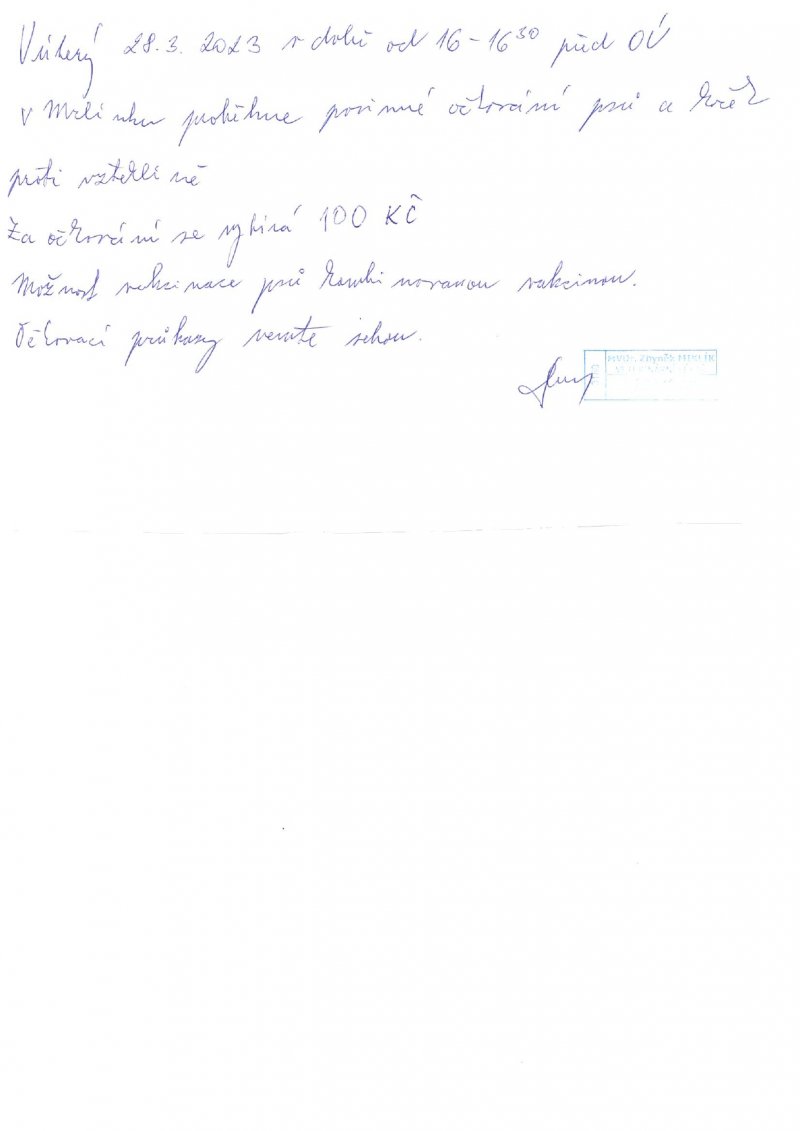 V úterý 28.3. 2023 v době od 16-16³⁰ před OÚ
v Mrlínku proběhne povinné očkování psů a koček
proti vzteklině
Za očkování se vybírá 100 KČ
Možnost vakcinace psů kombinovanou vakcinou.
Očkovací průkazy vemte sebou.
MVDr. Zbyněk